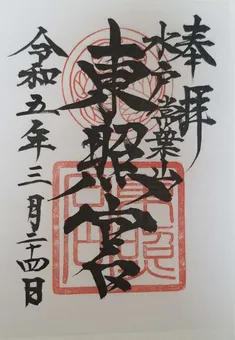 奉拝
水戸常葉山
東照宮
令和五年三月二十四日